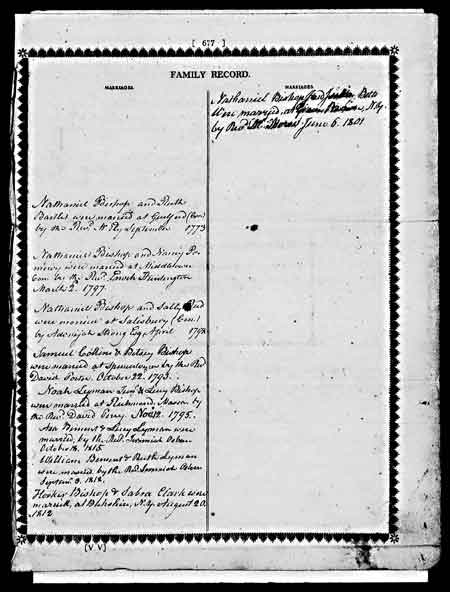 [ 677 ]
FAMILY RECORD.
MARRIAGES.
Nathaniel Bishop and Ruth
Bartlet were married at Guilford (Con)
by the Revd. Mr. Ely September 1773
Nathaniel Bishop and Nancy Po-
meroy were married at Middletown
Con. by the Revd. Enoch Huntington
March 2d. 1797.
Nathaniel Bishop and Sally
were married at Salisbury (Con.)
by Adonijah Strong Esq. April 1798
Samuel Collins & Betsey Bishop
were married at by the Revd
David Porter. October 22. 1793.
Noah Lyman Junr. & Lucy Bishop
were married at Richmond. Massa. by
the Revd. David Perry Novr. 12. 1795.
Asa Bement & Lucy Lyman were
married, by the Revd. Jeremiah
October 18. 1815.
William Bement & Ruth Lyman
were married by the Revd. Jeremiah
Septemr. 3. 1812.
Hooker Bishop & Sabra Clark were
married, at Berkshire, N.Y. August 20.
1812
MARRIAGES.
Nathaniel Bishop and
were married, at N.Y.
by Revd. Mr. June 6. 1801
[V V]